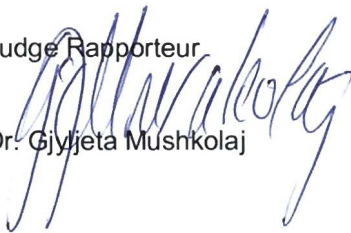 udge Rapporteur
Dr. Gjyljeta Mushkolaj